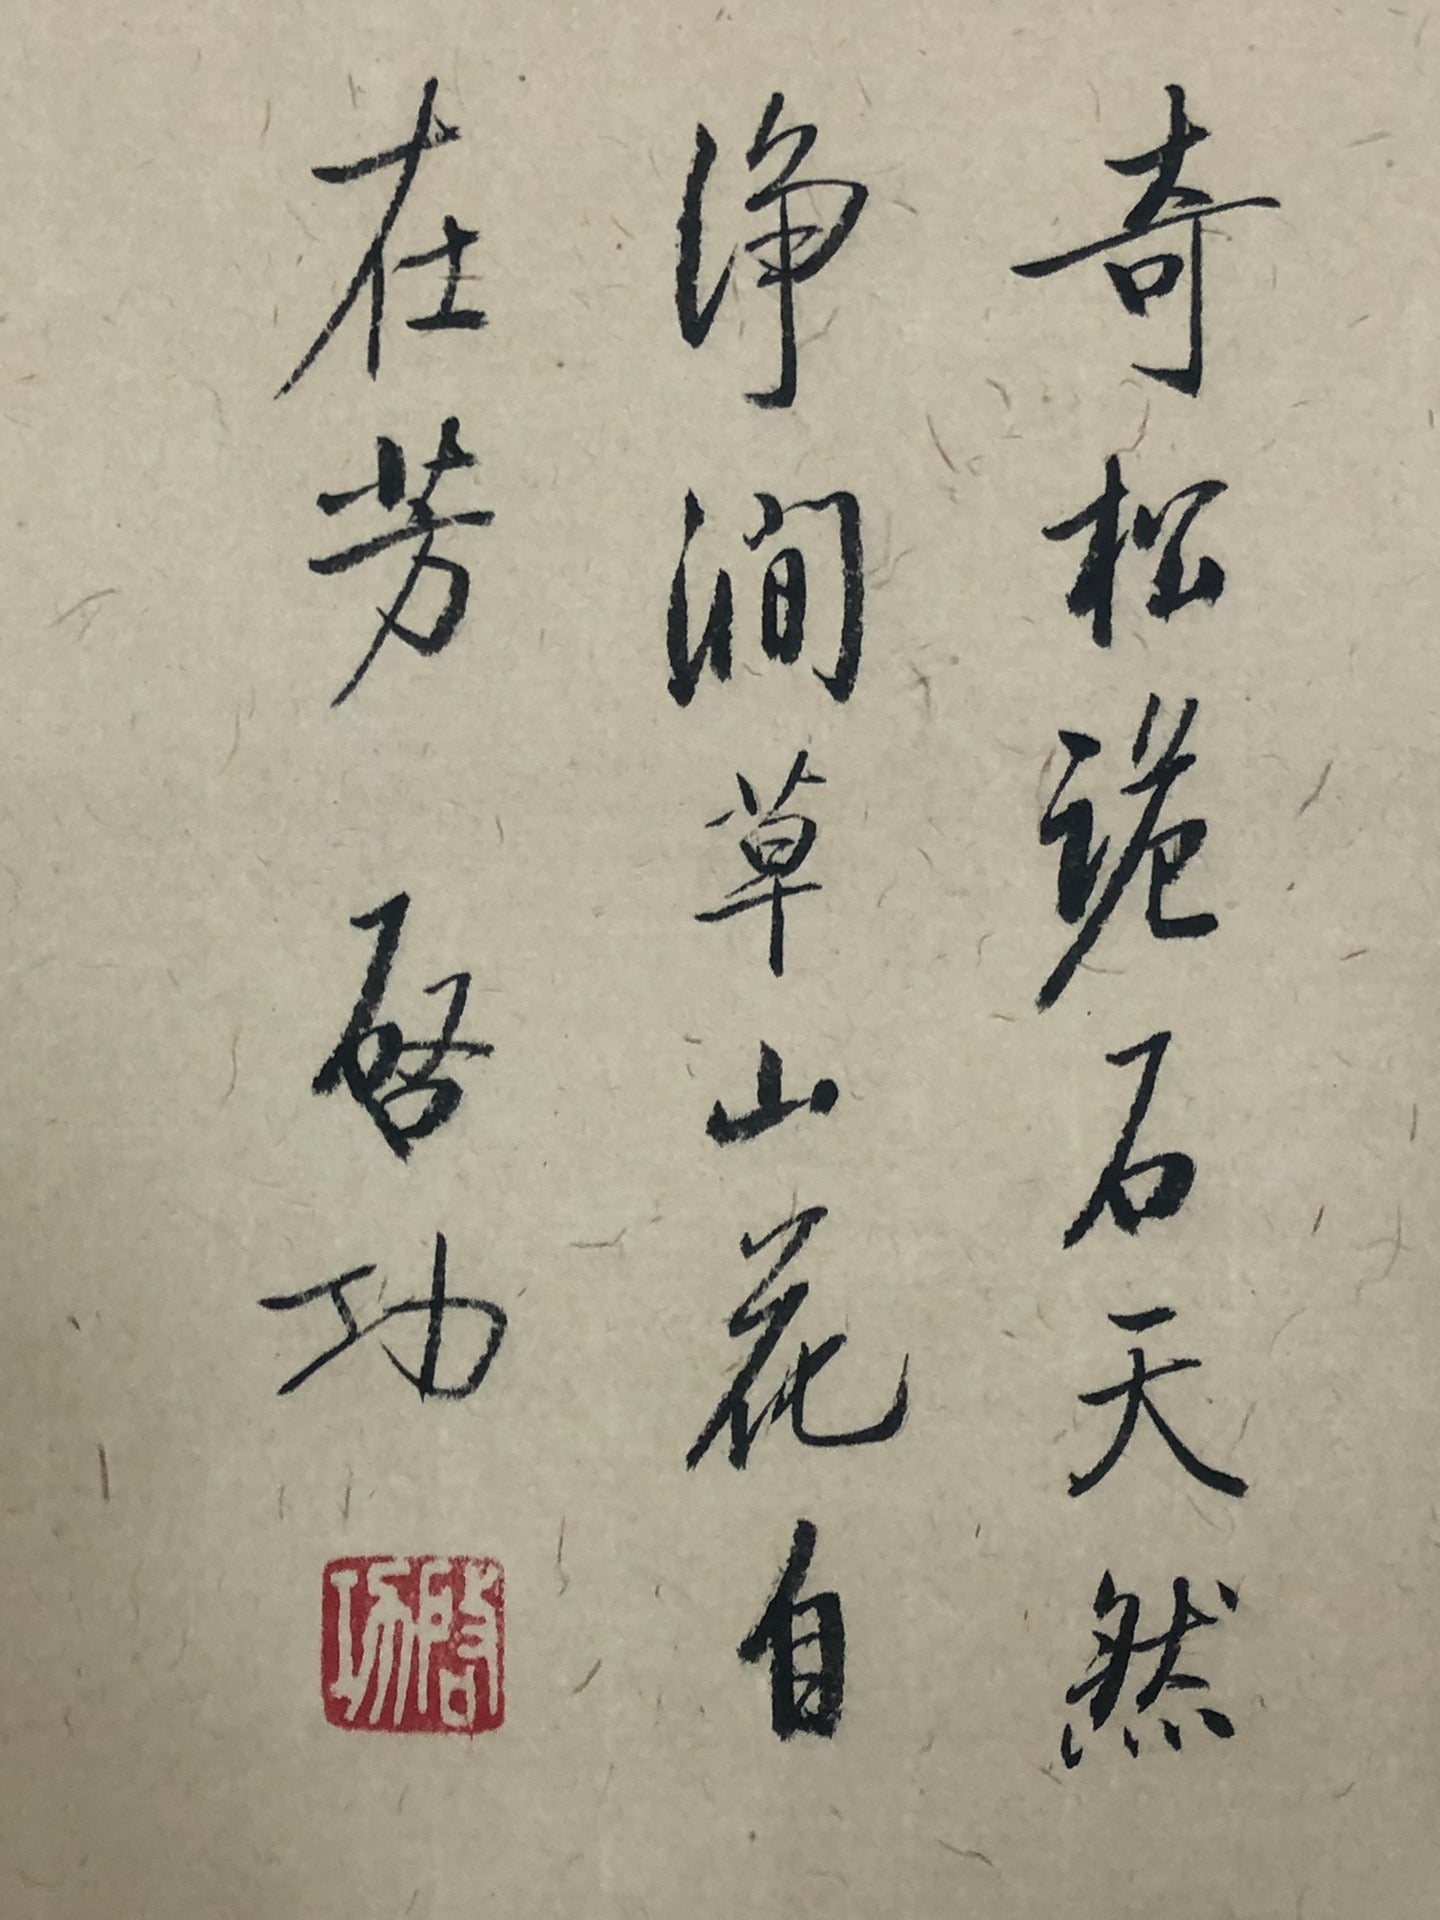 奇松诡石天然
净涧草山花自
在芳 启功
启功